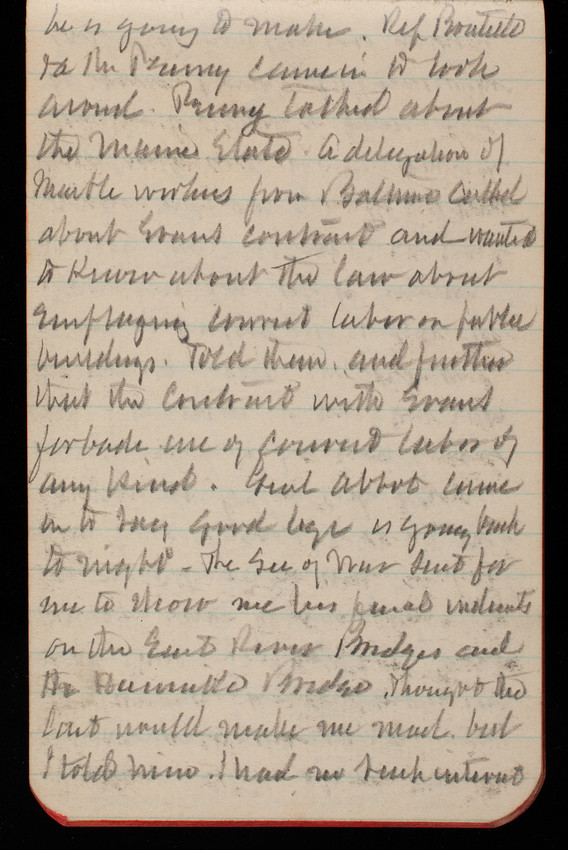 he is going to make. Rep Boutelle
& Mr Penny came in to look
around. Penny talked about
the Maine State. A delegation of
Marble workers from Baltimore called
about Evans contract and wanted
to know about the law about
employing convict labor on public
buildings. Told them, and further
that the Contract with Evans
forbade use of convict labor of
any kind. Genl Abbot came
in to say good bye is going back
to night - The Sec of War sent for
me to show me his final
on the East River Bridges and
the Bridge, thought the
last would make me mad. but
I told him. I had no such interest